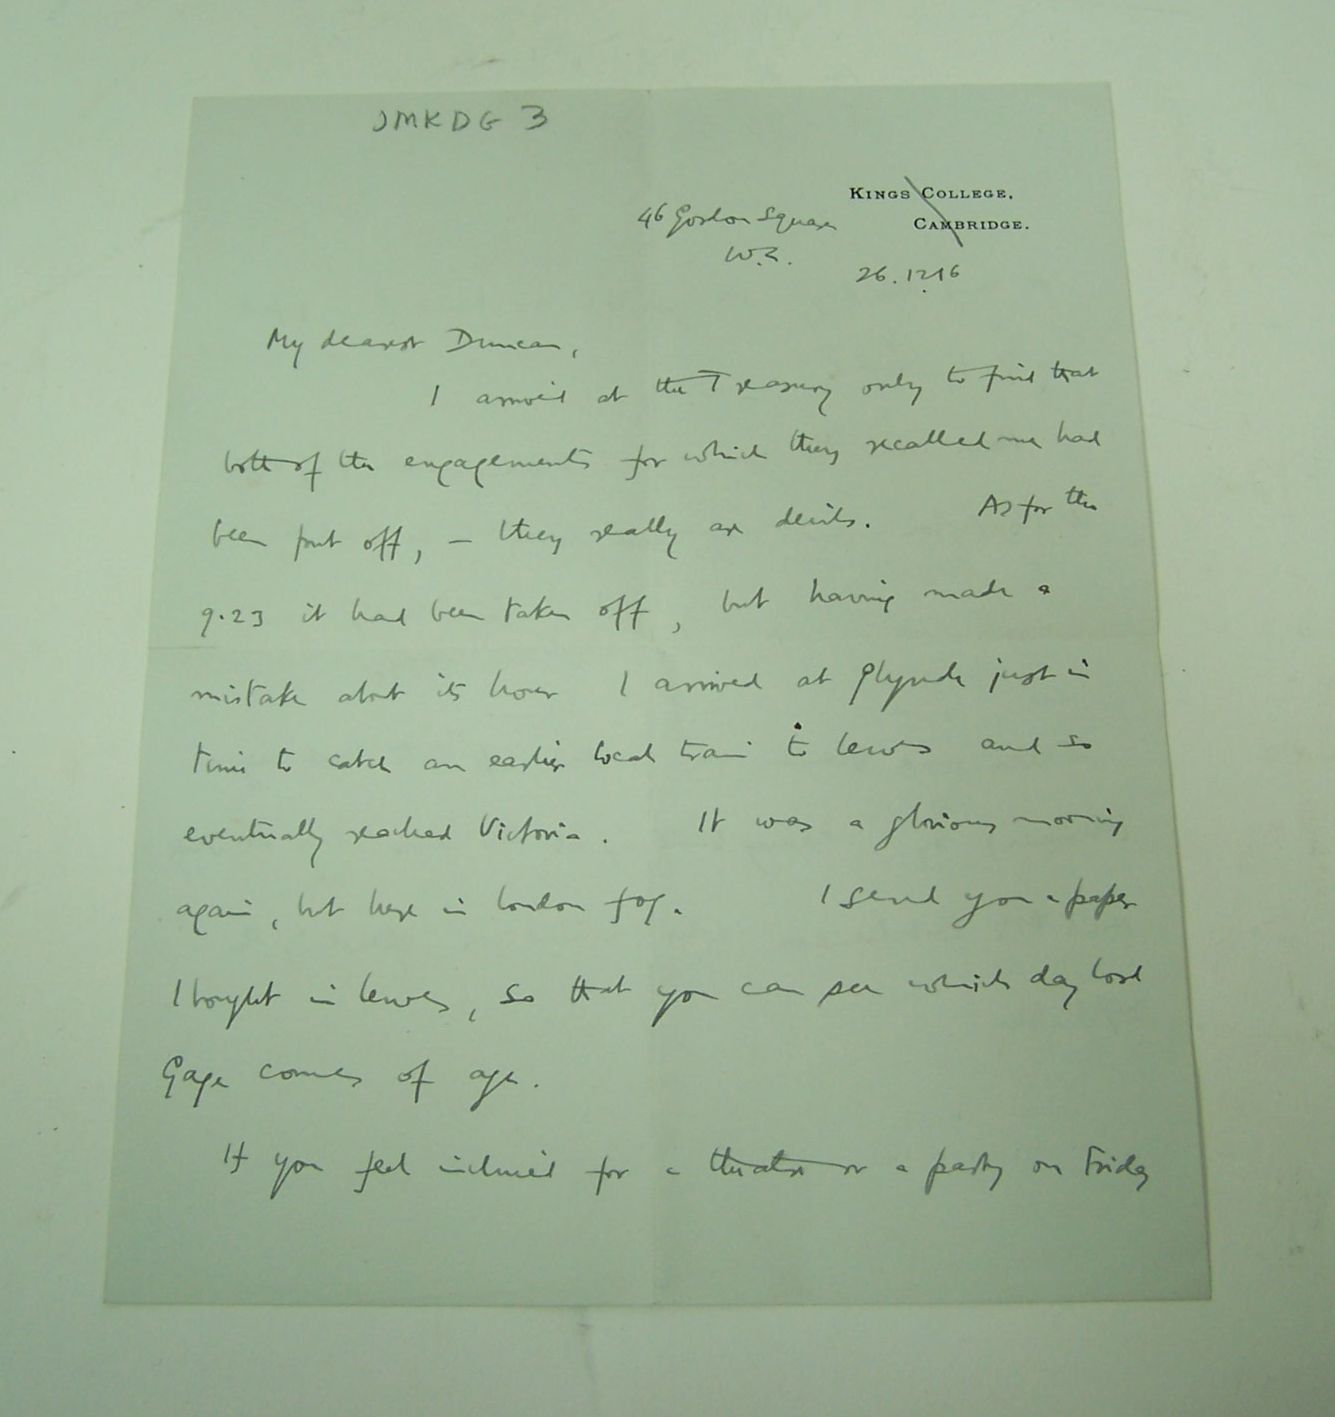 JMKDG 3
KINGS COLLEGE,
CAMBRIDGE.
46 Gordon Square
W.C.
26.12.16
My dearest Duncan,
I arrived at the Treasury only to find that
both of the engagements for which they recalled me had
been put off, – they really are devils. As for the
9.23 it had been taken off, but having made a
mistake about its hour I arrived at Glynde just in
time to catch an earlier local train to Lewes and so
eventually reached Victoria. It was a glorious morning
again, but here in London fog. I send you a paper
I bought in Lewes, so that you can see which day Lord
Gage comes of age.
If you feel inclined for a theatre or a party on Friday